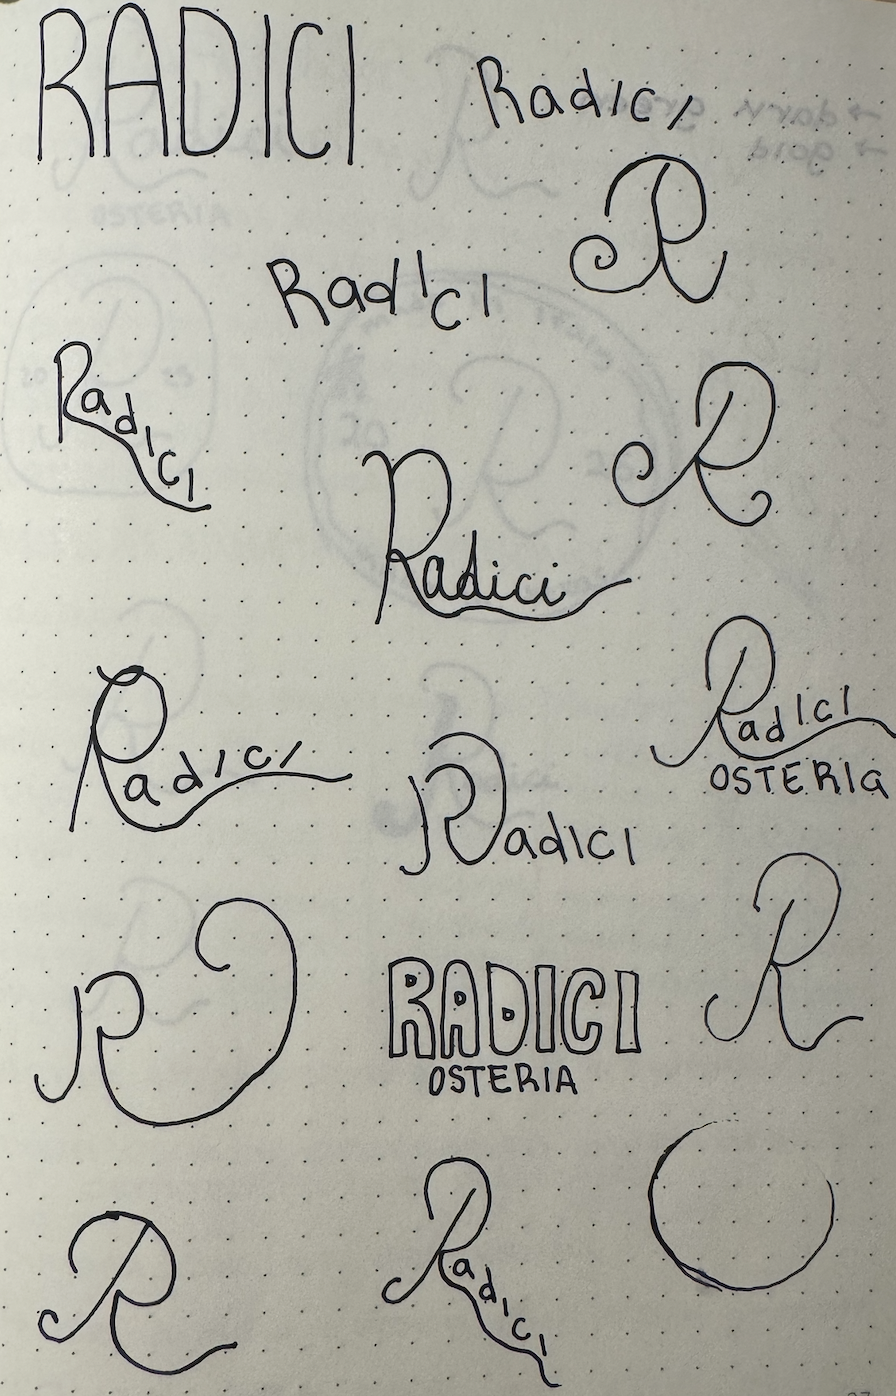 RADICI
Radici
→ dark green
→ gold
R
Radici
Radici
R
Radici
Radici
OSTERIA
Radici
Radici
R
R
RADICI
OSTERIA
R
Radici
R